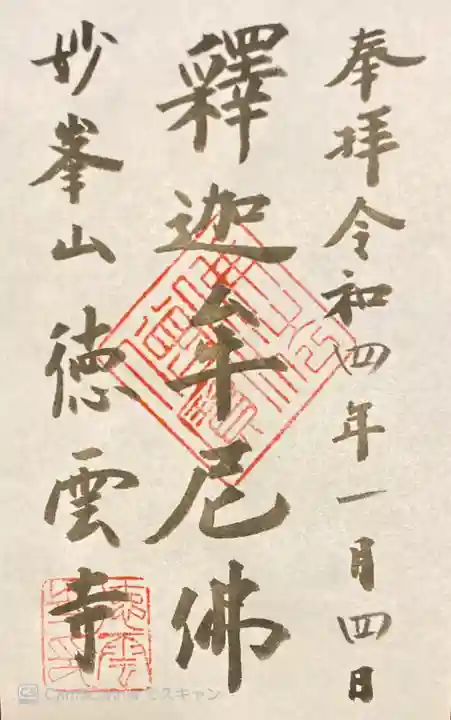 奉拝令和四年一月四日
釋迦牟尼佛
妙峯山徳雲寺
CamScannerでスキャン